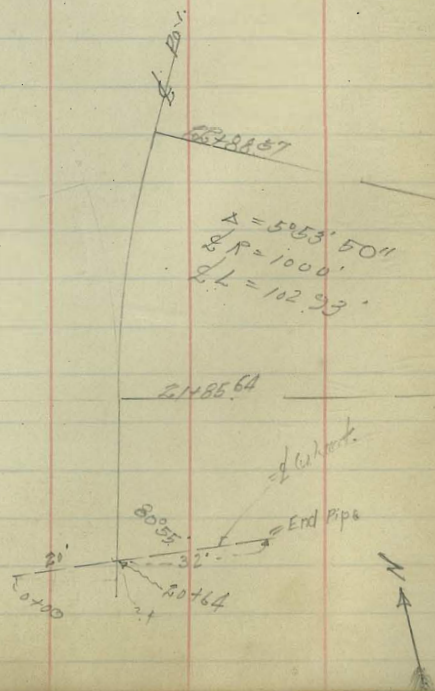 ℄ Rd.
22+88.57
Δ = 5°53'50"
℄ R = 1000'
℄ L = 102.93'
21+85.64
℄ Culvert.
80°55'
End Pipe
20'
32'
20+64
0+00
N